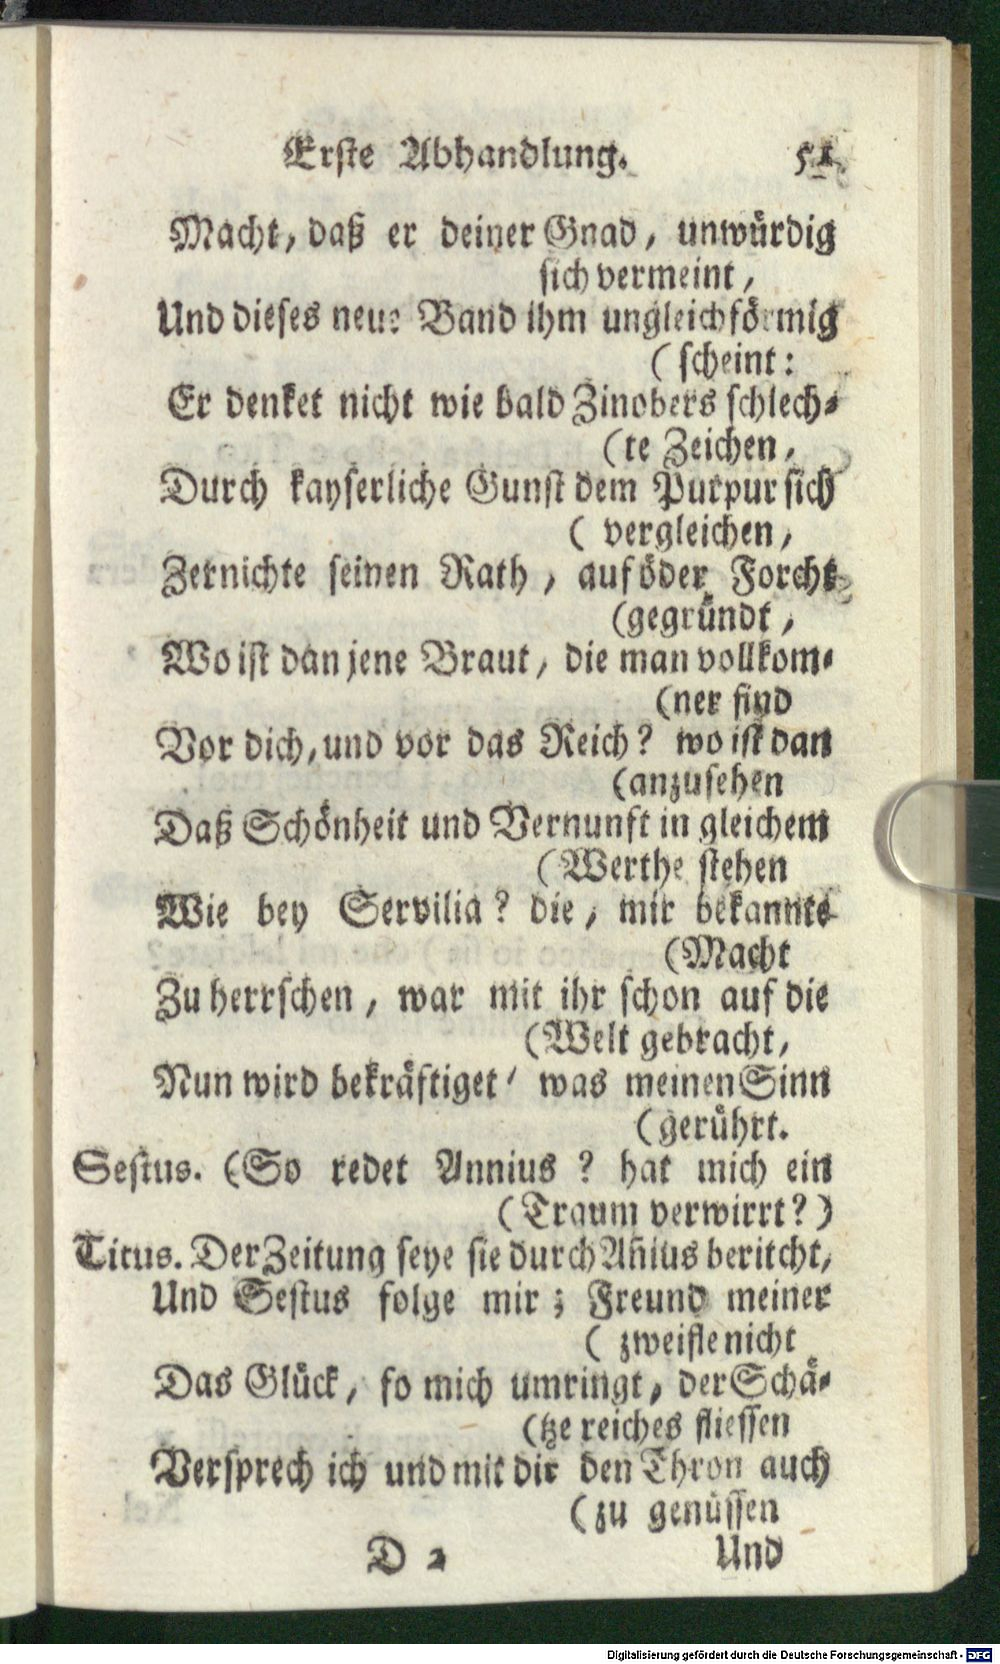 Erste Abhandlung. 51.
Macht, daß er deiner Gnad, unwürdig
sich vermeint,
Und dieses neue Band ihm ungleichförmig
(scheint:
Er denket nicht wie bald Zinobers schlech-
(te Zeichen,
Durch kayserliche Gunst dem Purpur sich
(vergleichen,
Zernichte seinen Rath, auf öder Forcht
(gegründt,
Wo ist dan jene Braut, die man vollkom-
(ner find
Vor dich, und vor das Reich? wo ist dan
(anzusehen
Daß Schönheit und Vernunft in gleichem
(Werthe stehen
Wie bey Servilia? die, mir bekannte
(Macht
Zu herrschen, war mit ihr schon auf die
(Welt gebracht,
Nun wird bekräftiget, was meinen Sinn
(gerührt.
Sestus. (So redet Annius? hat mich ein
(Traum verwirrt?)
Titus. Der Zeitung seye sie durch Añius beritcht,
Und Sestus folge mir; Freund meiner
(zweifle nicht
Das Glück, so mich umringt, der Schä-
(tze reiches fliessen
Versprech ich und mit dir den Thron auch
(zu genüssen
D 2 Und
Digitalisierung gefördert durch die Deutsche Forschungsgemeinschaft - DFG